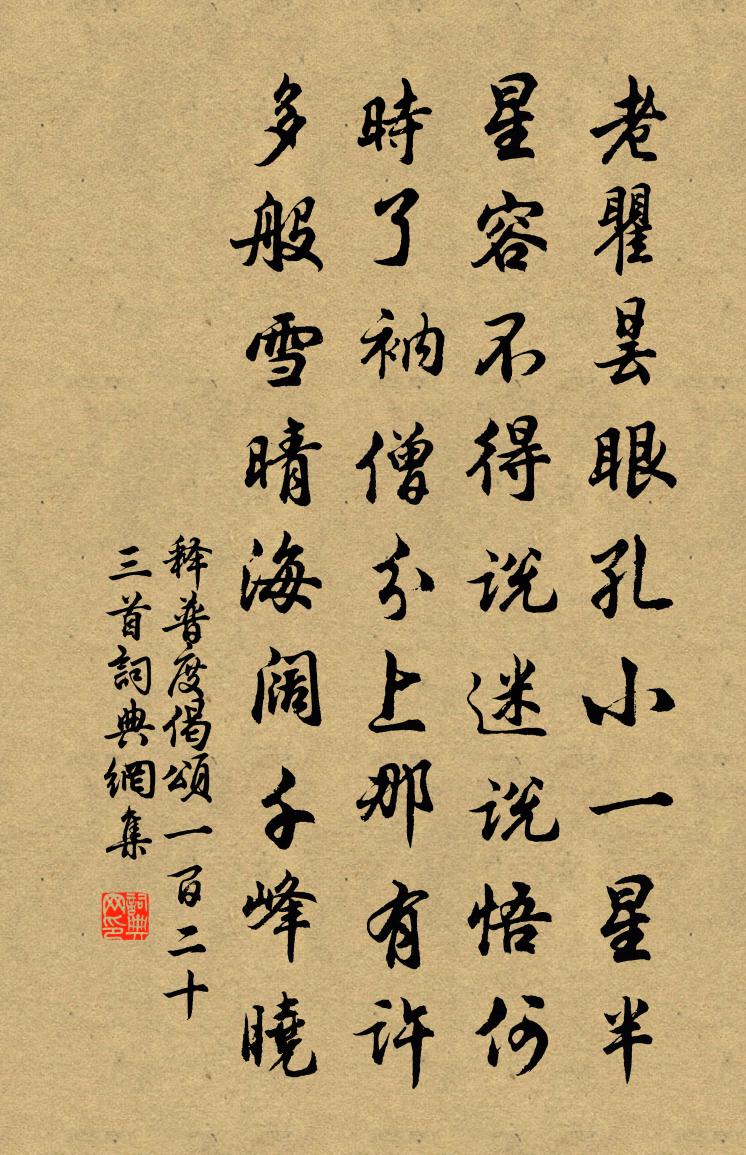 老瞿曇眼孔小一星半
星容不得説迷説悟何
時了衲僧分上那有許
多般雪晴海闊千峰曉
释普度偈頌一百二十
三首詞典網集
詞典
网印